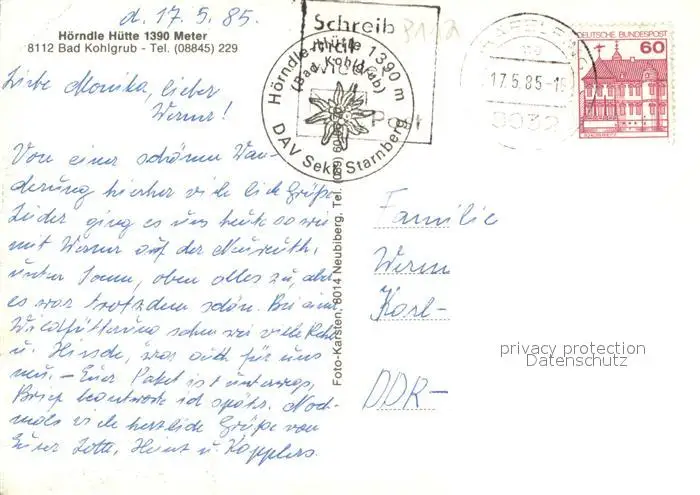 d. 17. 5. 85.
Hörndle Hütte 1390 Meter
8112 Bad Kohlgrub - Tel. (08845) 229
Liebe Monika, lieber
Werner!
Von einer schönen Wan-
derung hierher viele liebe Grüße
Leider ging es uns heute so wie
mit Werner auf der Neureuth,
unten Sonne, oben alles zu, aber
es war trotzdem schön. Bei einer
Wildfütterung sahen wir viele Rehe
u. Hirsche, war auch für uns
neu. - Euer Paket ist unterwegs,
Brief beantworte ich später. Noch-
mals viele herzliche Grüße von
Eurer Lotte, Heinz u. Kapplers.
Schreib
mal
wieder
Post
Hörndle-Hütte 1390 m
(Bad Kohlgrub)
DAV Sekt. Starnberg
17.5.85-1
DEUTSCHE BUNDESPOST
60
Foto-Karsten, 8014 Neubiberg, Tel. (089) 60
Familie
Werner
Karl-
DDR-
privacy protection
Datenschutz